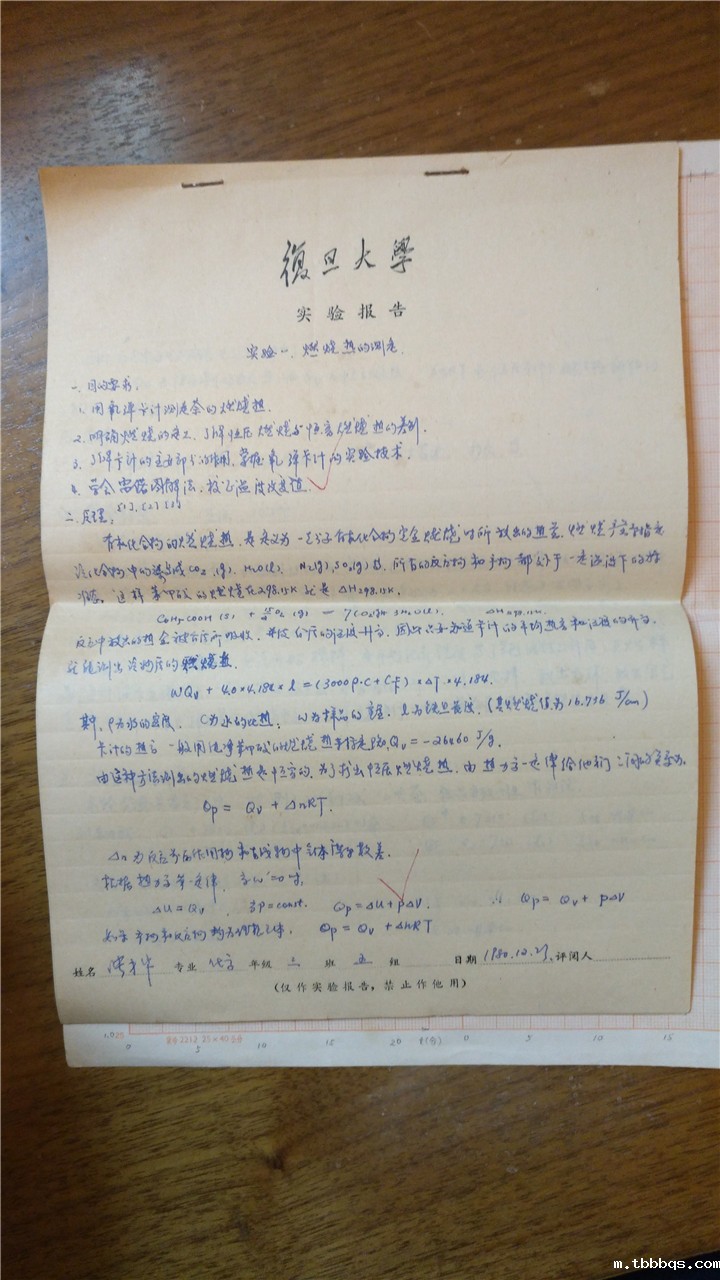 復旦大學
实验报告
实验一、燃烧热的测定
一、目的要求:
1. 用氧弹卡计测定萘的燃烧热.
2. 明确燃烧热的定义,了解恒压燃烧热与恒容燃烧热的差别.
3. 了解卡计的主要部分的作用,掌握氧弹卡计的实验技术.
4. 学会雷诺图解法,校正温度改变值.
二、原理: [1], [2] [3]
有机化合物的燃烧热,是定义为一克分子有机化合物完全燃烧时所放出的热量,燃烧产物是指有
机化合物中的 成CO₂(g), H₂O(l), N₂(g), SO₂(g)等,所有的反应物和产物都处于一定温度下的标
准态,这样苯甲酸的燃烧在298.15K就是ΔH298.15K.
C₆H₅COOH(s) + 15/2 O₂(g) — 7CO₂(g)+3H₂O(l). ΔH298.15K.
反应中放出的热全被 所吸收,并使 的温度升高,因此只要知道卡计的 热容和 的升高,
就能测出该物质的燃烧热.
WQv + 4.0×4.184×l = (3000ρ·C + C卡) × ΔT × 4.184.
其中,ρ为水的密度, C为水的比热, W为样品的重量, l为 长度, (其燃烧值为16.736 J/cm)
卡计的热容一般用纯净苯甲酸的燃烧热来标定, Qv = -26460 J/g.
由这种方法测出的燃烧热是恒容的,为了求出恒压燃烧热,由热力学一定律给他们之间的关系为,
Qp = Qv + ΔnRT.
Δn为反应前后作用物和生成物中气体摩尔数差.
根据热力学第一定律, 当w'=0时,
ΔU = Qv, 当p=const. Qp = ΔU + pΔV. ∴ Qp = Qv + pΔV
如果产物和反应物均为理想气体, Qp = Qv + ΔnRT
姓名 专业 化学 年级 三 班 五 组 日期 1980.10.27. 评阅人
(仅作实验报告,禁止作他用)
0 5 10 15 20 t(分) 0 5 10 15
m.tbbbqs.com